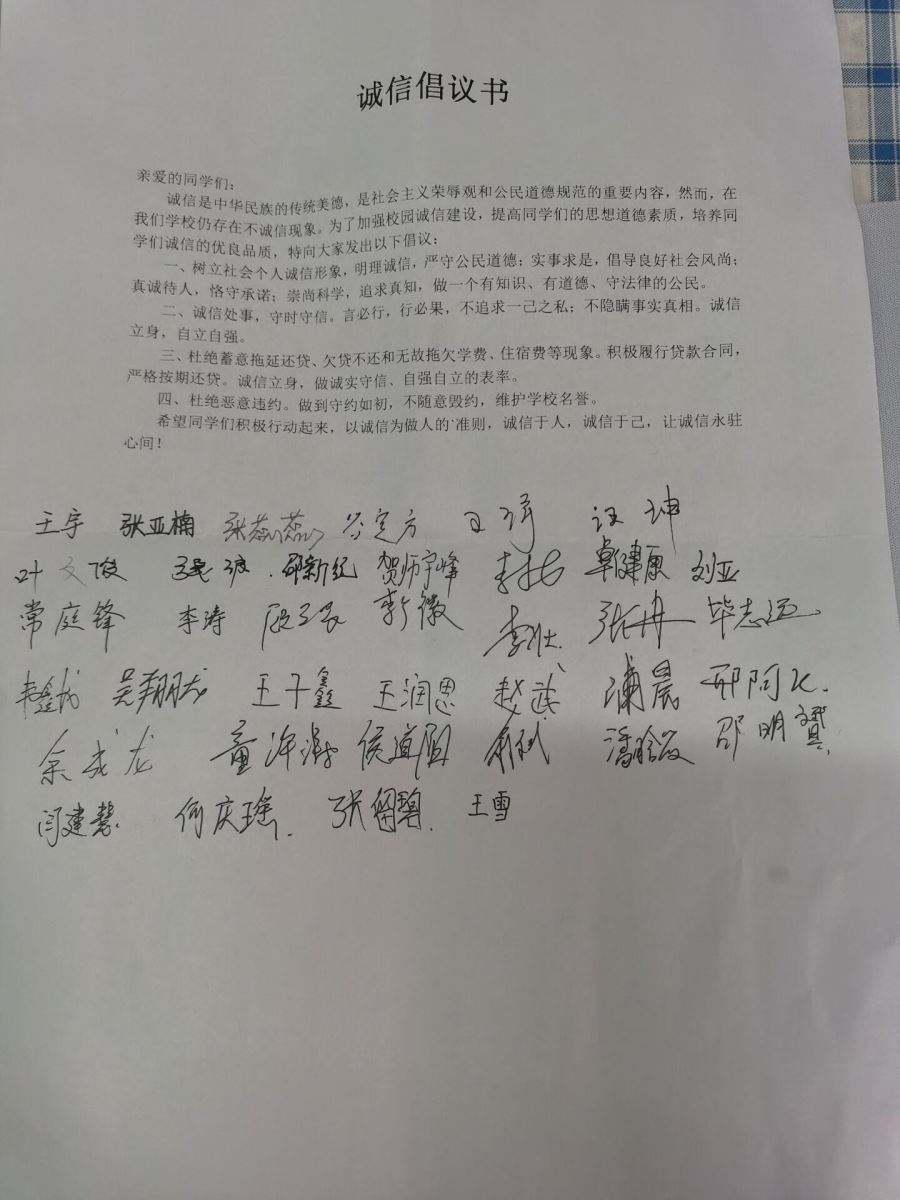 诚信倡议书
亲爱的同学们：
诚信是中华民族的传统美德，是社会主义荣辱观和公民道德规范的重要内容，然而，在
我们学校仍存在不诚信现象。为了加强校园诚信建设，提高同学们的思想道德素质，培养同
学们诚信的优良品质，特向大家发出以下倡议：
一、树立社会个人诚信形象，明理诚信，严守公民道德；实事求是，倡导良好社会风尚；
真诚待人，恪守承诺；崇尚科学，追求真知，做一个有知识、有道德、守法律的公民。
二、诚信处事，守时守信。言必行，行必果，不追求一己之私；不隐瞒事实真相。诚信
立身，自立自强。
三、杜绝蓄意拖延还贷、欠贷不还和无故拖欠学费、住宿费等现象。积极履行贷款合同，
严格按期还贷。诚信立身，做诚实守信、自强自立的表率。
四、杜绝恶意违约。做到守约如初，不随意毁约，维护学校名誉。
希望同学们积极行动起来，以诚信为做人的`准则，诚信于人，诚信于己，让诚信永驻
心间！
王宇 张亚楠 张蕊蕊 汪坤
叶文俊 邵新纪 贺师宇峰 卓健康 刘亚
常庭锋 李涛 李壮 张冉 毕志远
吴翔龙 王千鑫 王润恩 赵武 浦晨
余成龙 侯道国 邵明赟
闫建慧 何庆瑶 张留碧 王雪